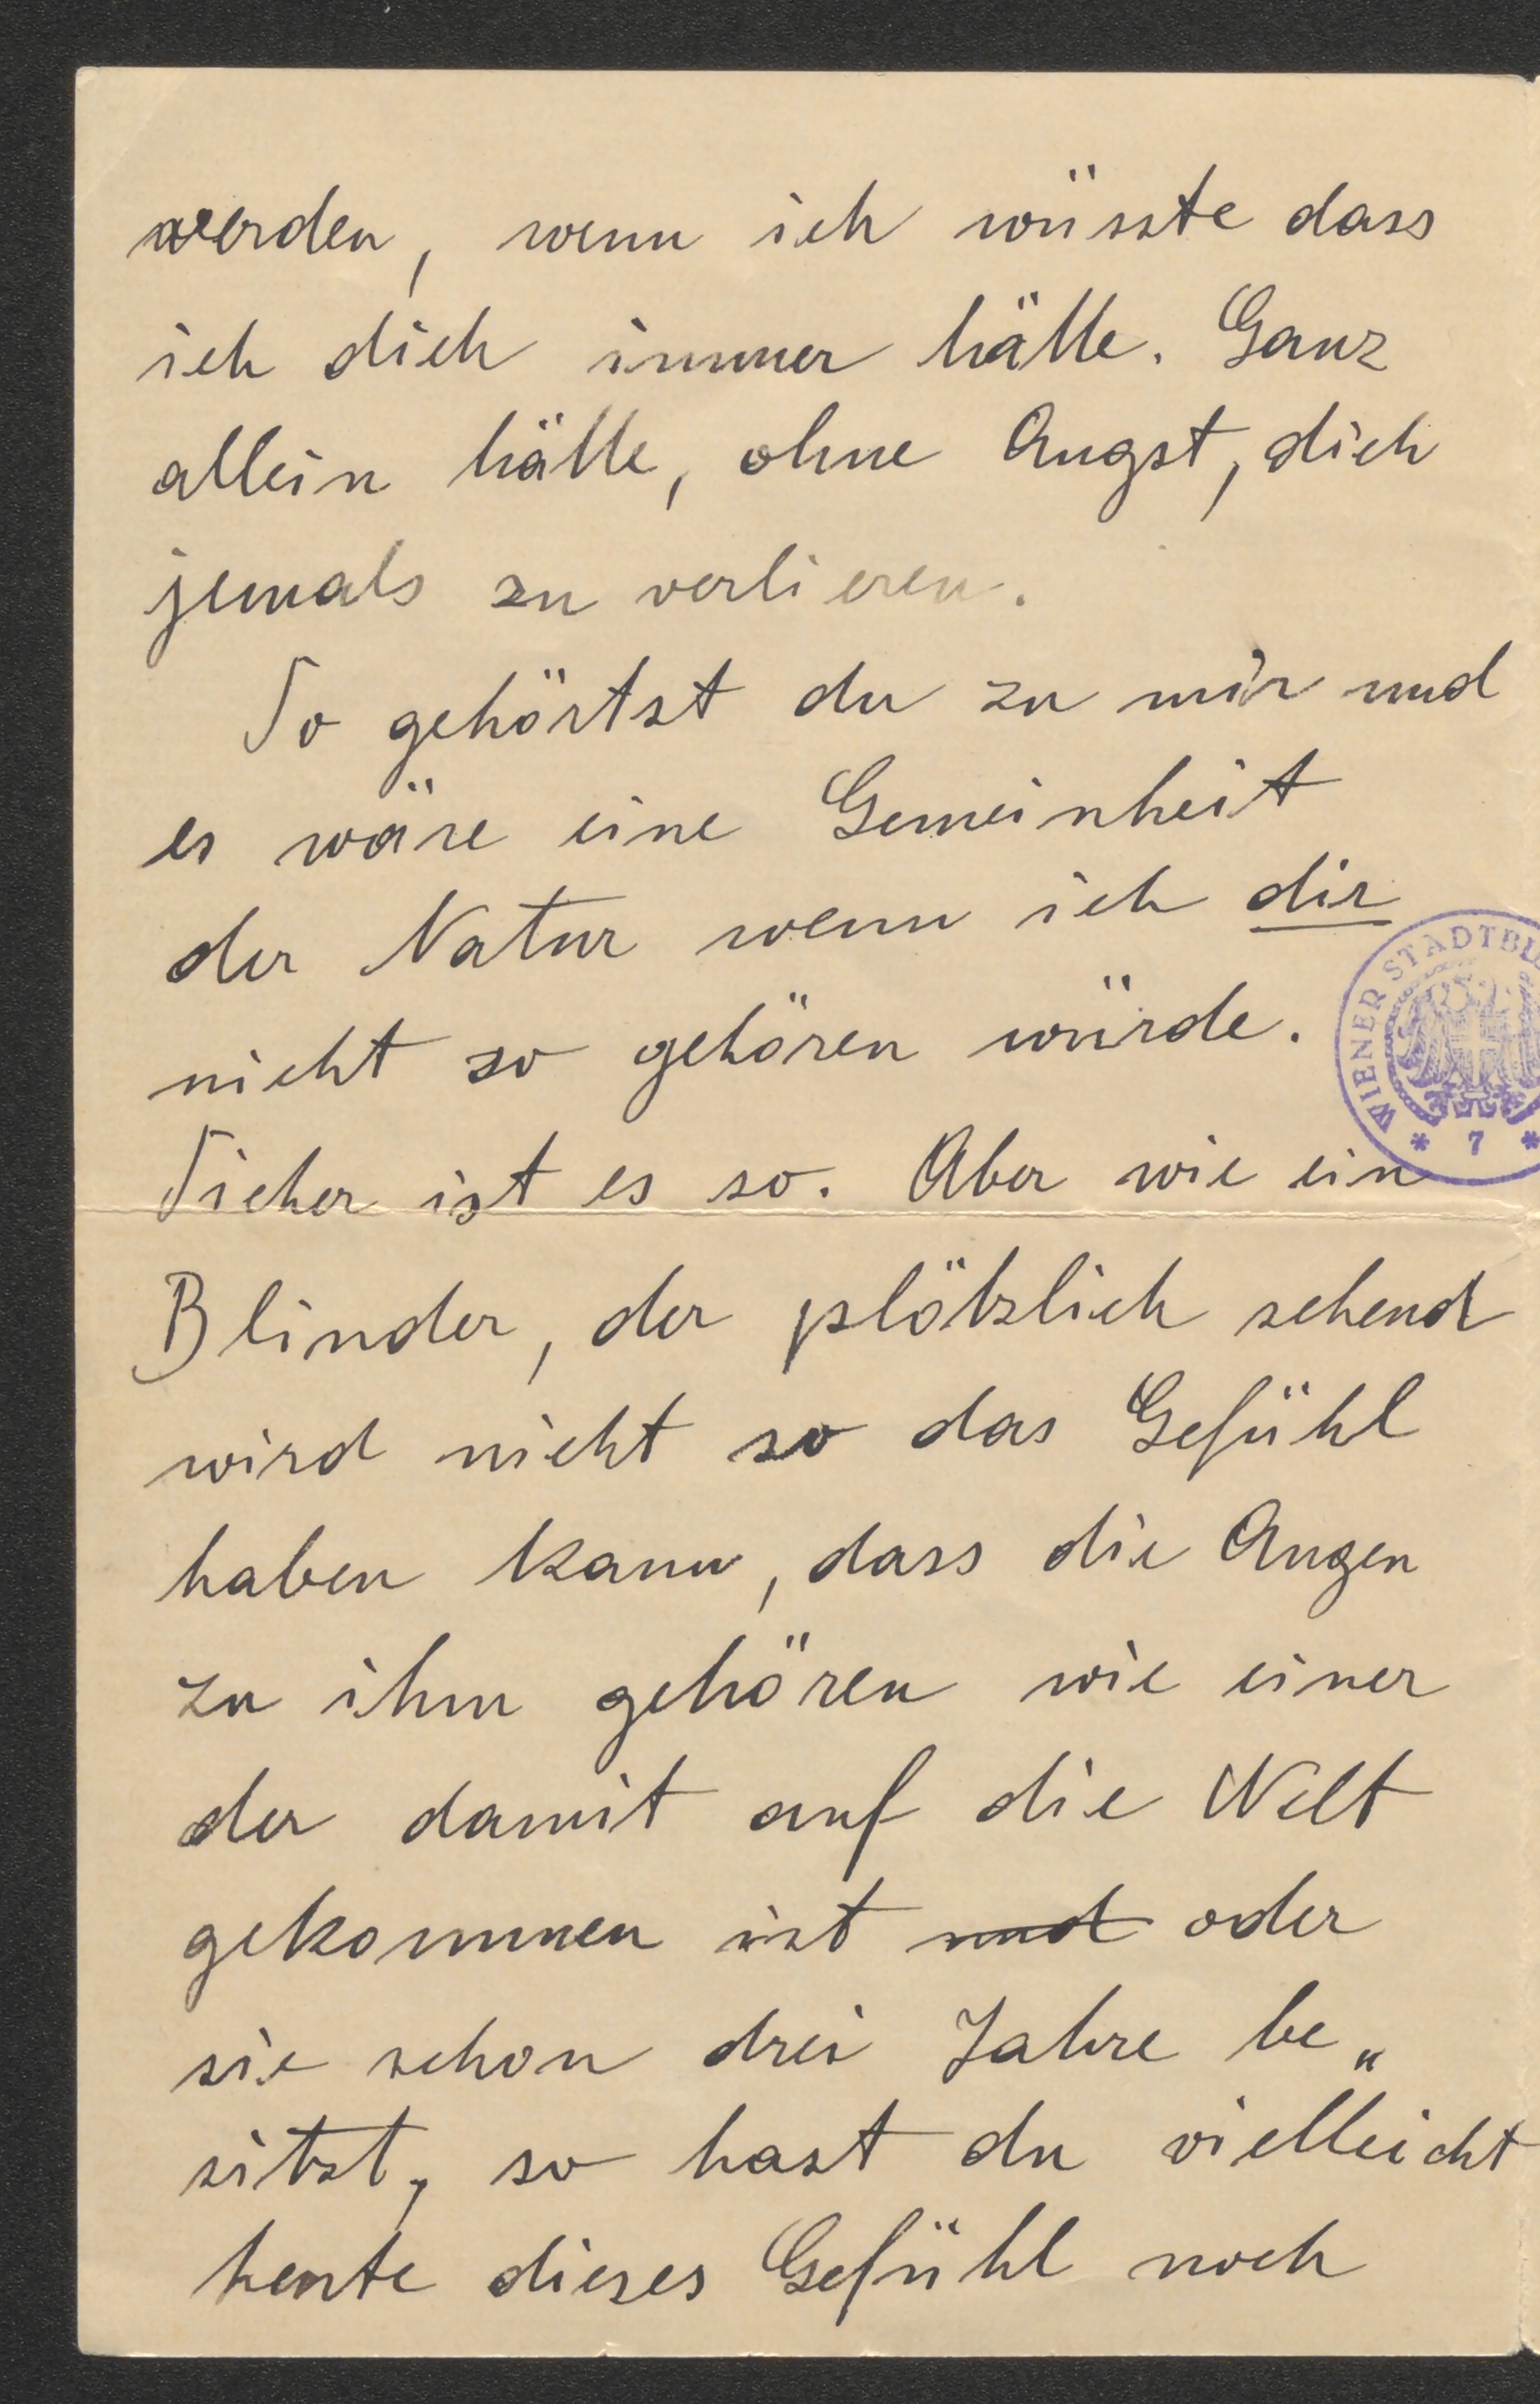 werden, wenn ich wüsste dass
ich dich immer hätte. Ganz
allein hätte, ohne Angst, dich
jemals zu verlieren.
So gehörtst du zu mir und
es wäre eine Gemeinheit
der Natur wenn ich dir
nicht so gehören würde.
WIENER STADTBI
* 7 *
Sicher ist es so. Aber wie ein
Blinder, der plötzlich sehend
wird nicht so das Gefühl
haben kann, dass die Augen
zu ihm gehören wie einer
der damit auf die Welt
gekommen ist und oder
sie schon drei Jahre be„
sitzt, so hast du vielleicht
heute dieses Gefühl noch